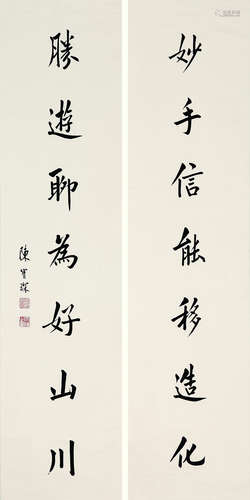 妙手信能移造化
勝遊聊為好山川
陳寶琛